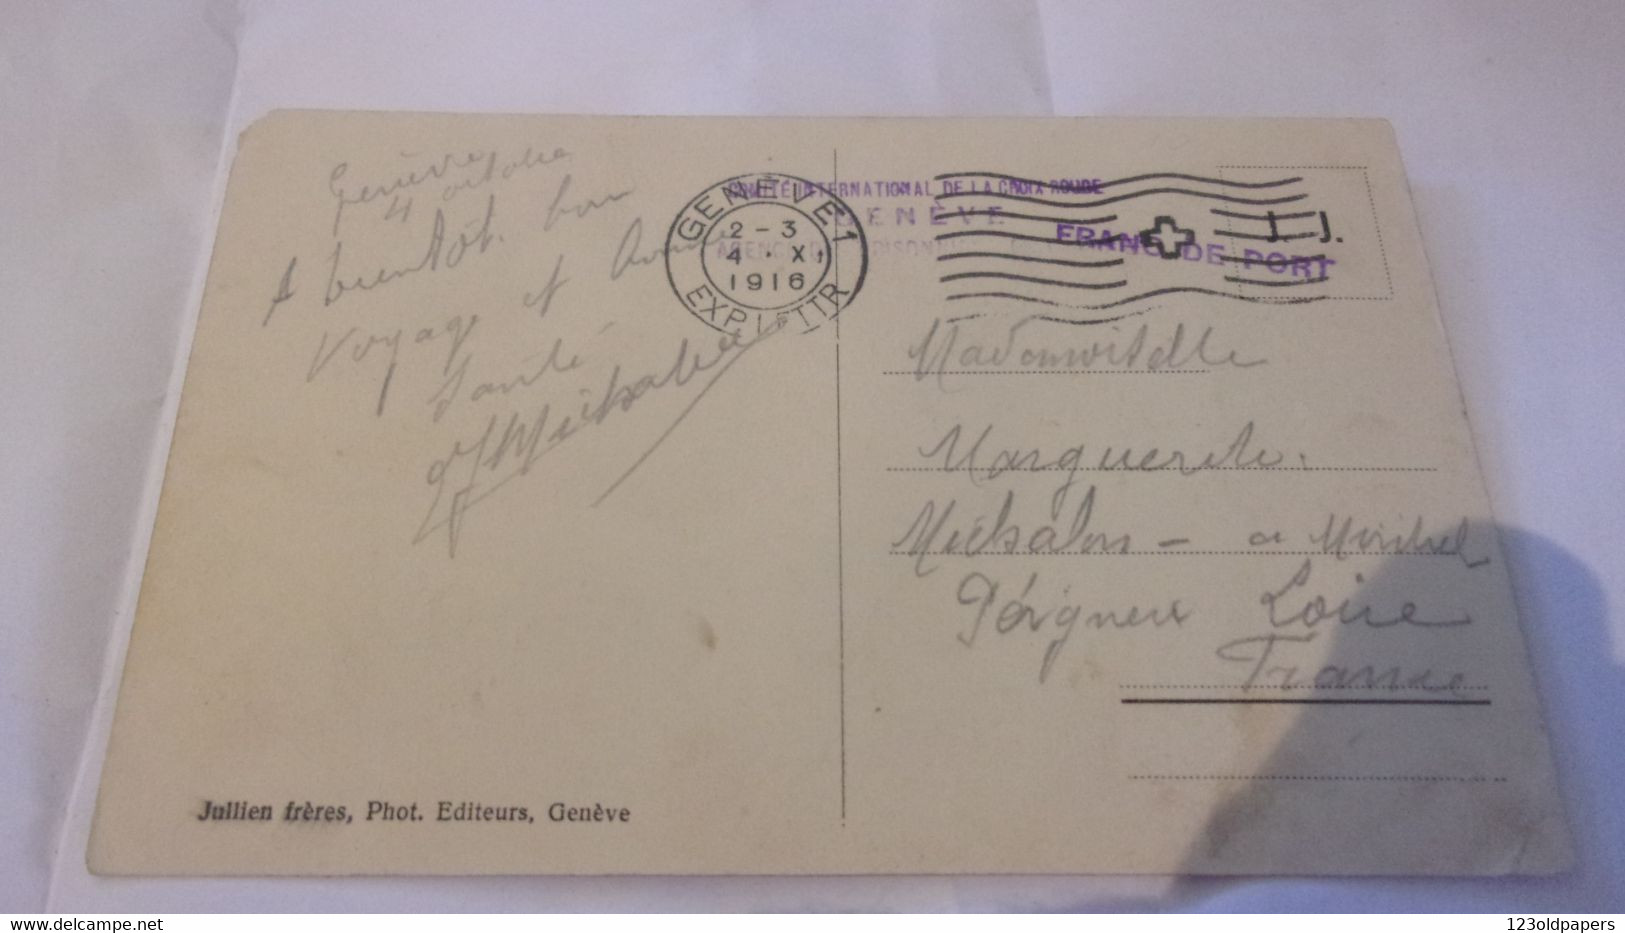 Genève
4 octobre
A bientôt. bon
Voyage et bonne
Santé
Michalon
GENÈVE 1
2-3
4 · X
1916
EXP. LETTR
COMITÉ INTERNATIONAL DE LA CROIX ROUGE
GENÈVE
FRANC DE PORT
J. J.
Mademoiselle
Marguerite
Michalon - a Miribel
Périgneux Loire
France
Jullien frères, Phot. Editeurs, Genève
123oldpapers
delcampe.net